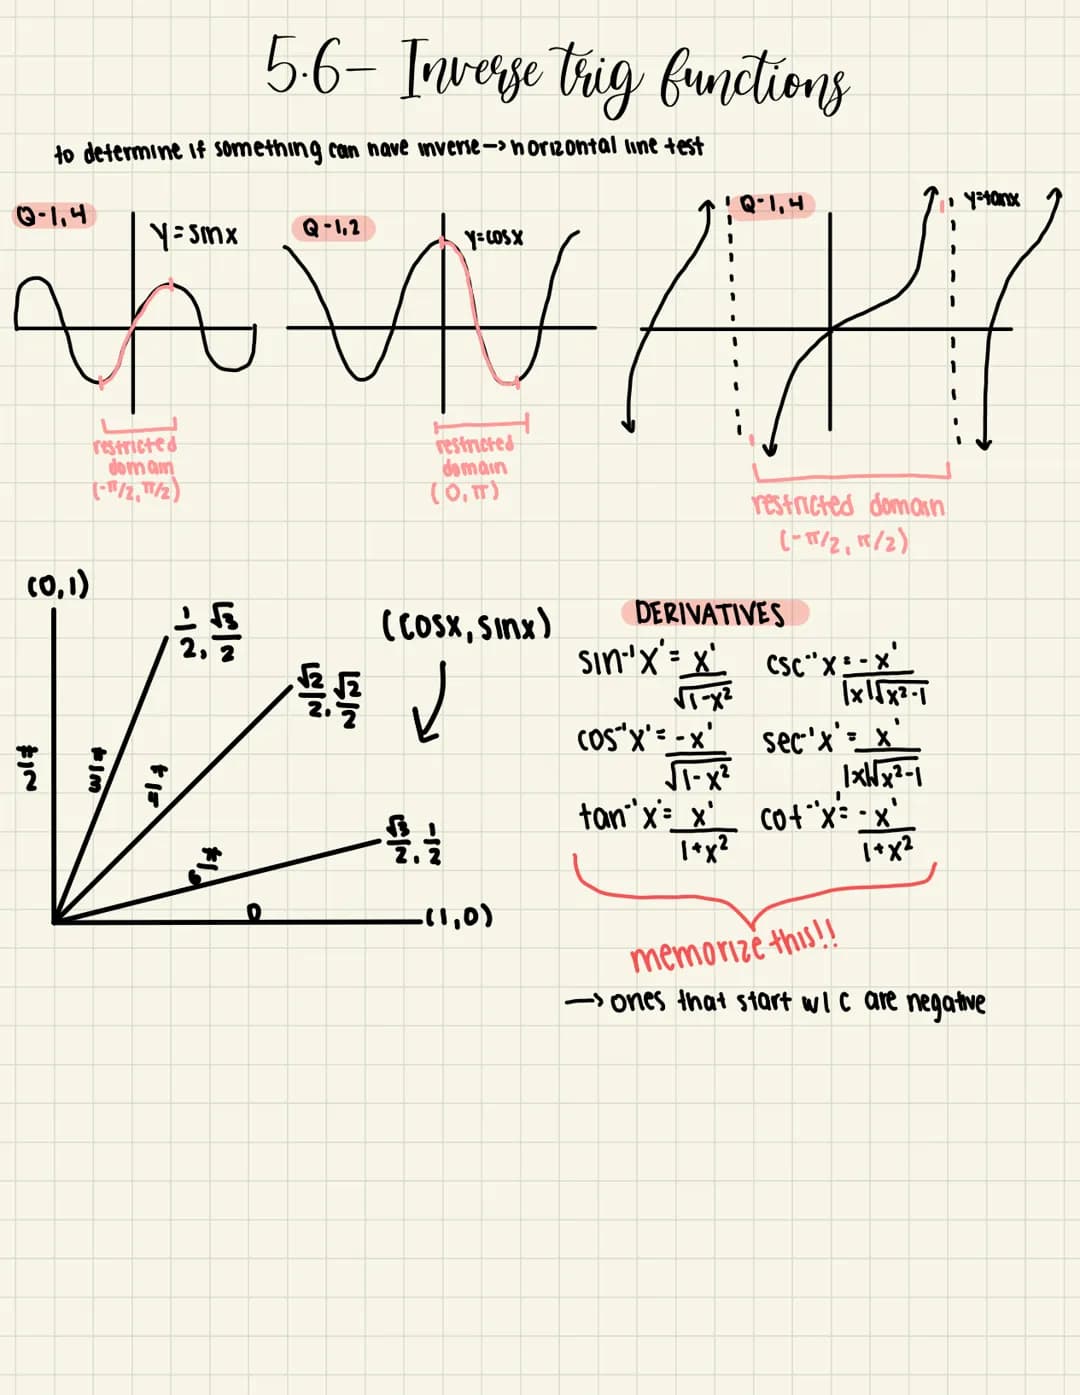 5.6- Inverse trig functions
to determine if something can have inverse → horizontal line test
Q-1,4
y=sinx
Q-1,2
y=cosx
Q-1,4
y=tanx
restricted
domain
(-π/2, π/2)
restricted
domain
(0, π)
restricted domain
(-π/2, π/2)
(0,1)
1/2, √3/2
(cosx, sinx)
√2/2, √2/2
π/2
π/3
π/4
√3/2, 1/2
π/6
0
(1,0)
DERIVATIVES
sin⁻¹x' = x'/√1-x²
csc⁻¹x = -x'/|x|√x²-1
cos⁻¹x' = -x'/√1-x²
sec⁻¹x' = x'/|x|√x²-1
tan⁻¹x' = x'/1+x²
cot⁻¹x' = -x'/1+x²
memorize this!!
→ ones that start w/ c are negative